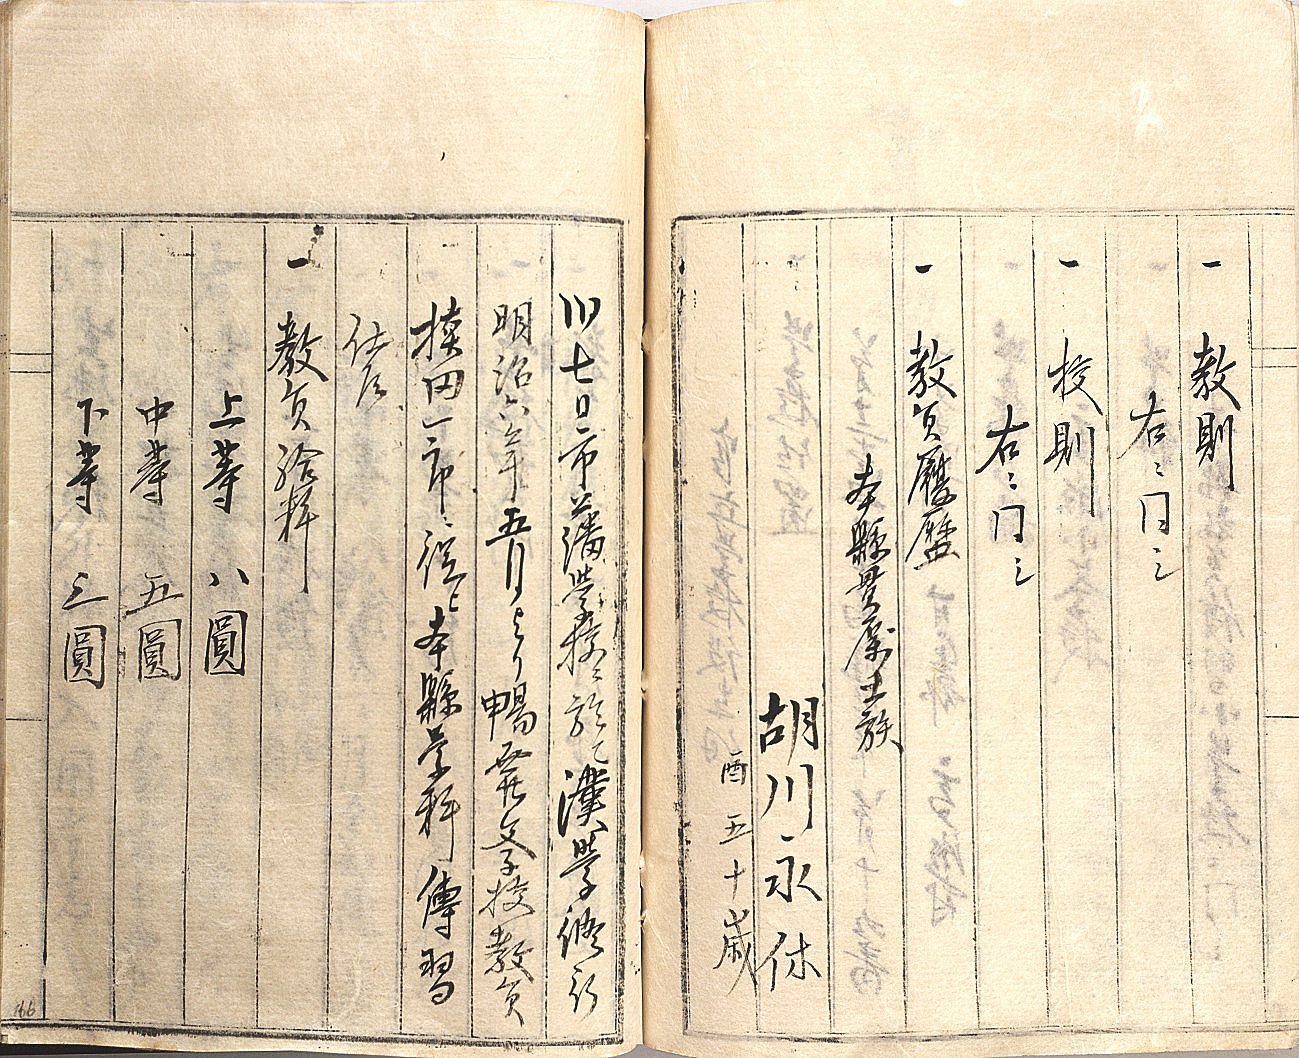 一 教則
右ニ同シ
一 校則
右ニ同シ
一 教員履歴
本縣貫属士族
胡川永休
酉五十歳
川七日市藩学校ニ於テ漢学修行
明治六年五月ヨリ暢発学校教員
一郎ニ従ヒ本縣学科傳習
仕候
一 教員給料
上等 八圓
中等 五圓
下等 三圓
166